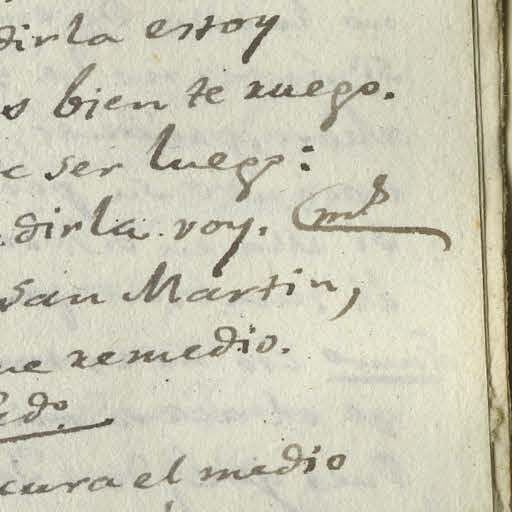 dirla estoy
s bien te ruego.
ser luego:
dirla voy.
San Martin,
ue remedio.
cura el medio